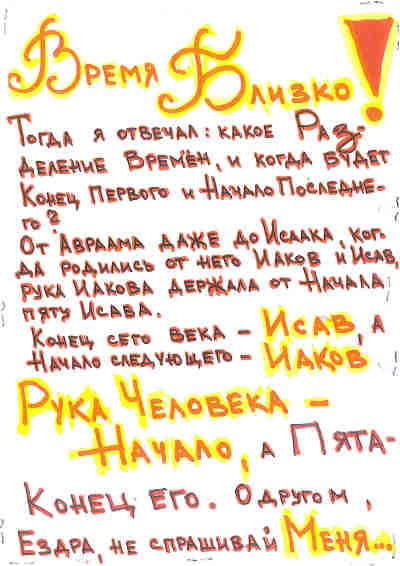 Время Близко!
Тогда я отвечал: какое Раз-
деление Времён, и когда будет
Конец Первого и Начало Последне-
го?
От Авраама даже до Исаака, ког-
да родились от него Иаков и Исав,
рука Иакова держала от Начала
пяту Исава.
Конец сего века – Исав, а
Начало следующего – Иаков
Рука Человека –
– Начало, а Пята-
Конец его. О другом,
Ездра, не спрашивай Меня...